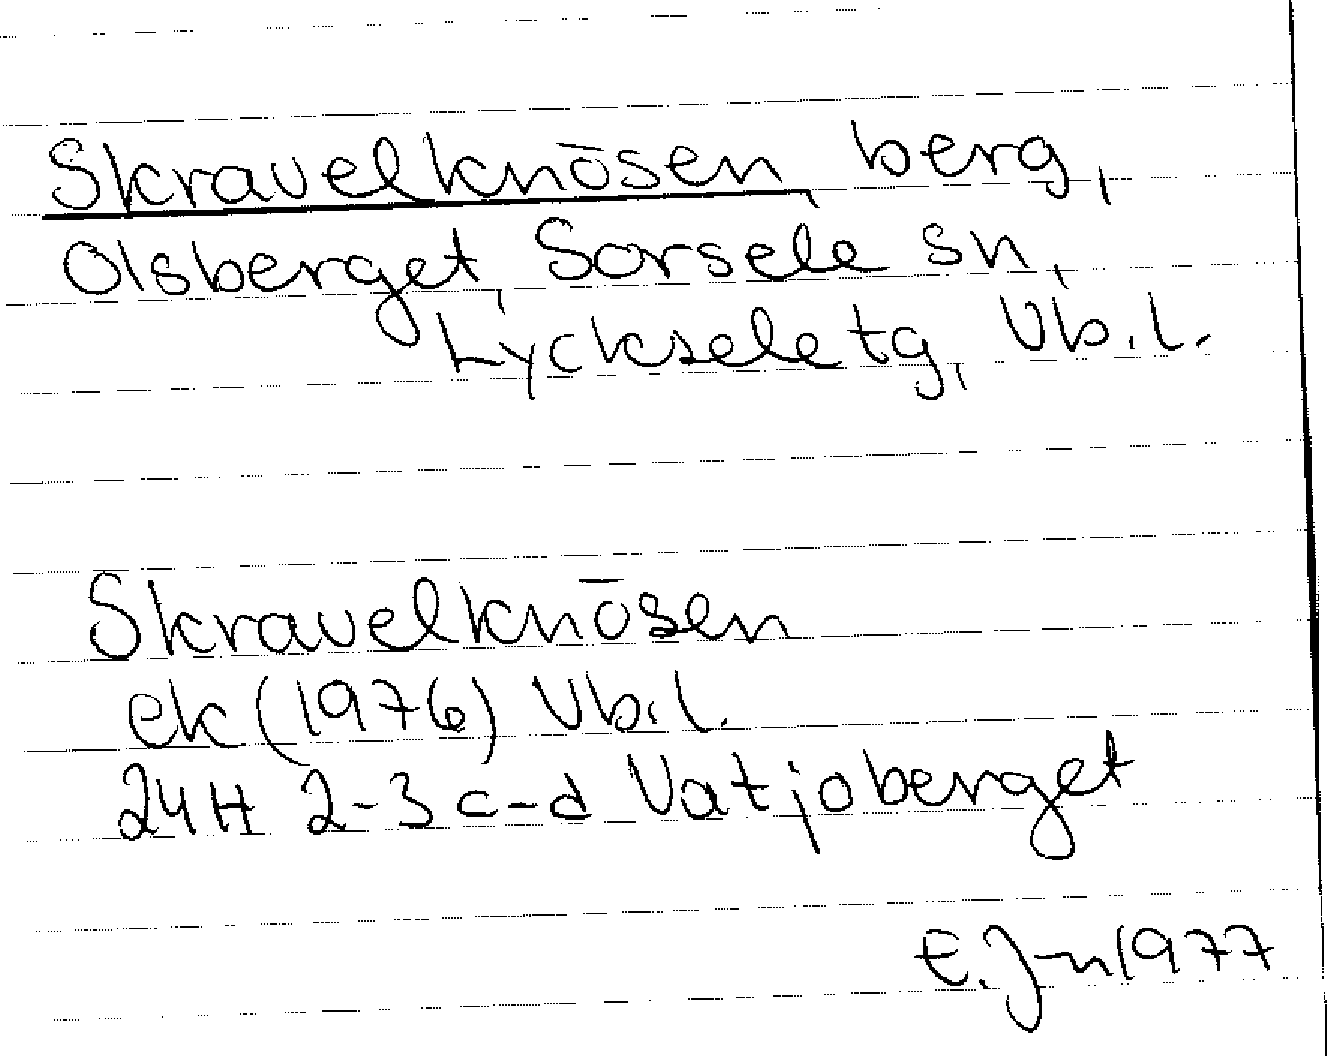 Skravelknösen berg,
Olsberget, Sorsele sn,
Lycksele tg, Vb.l.
Skravelknösen
ek (1976) Vb.l.
24H 2-3 c-d Vatjoberget
E.J-n 1977